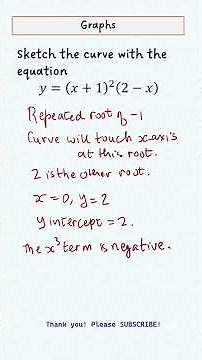 Graphs
Sketch the curve with the
equation
y = (x + 1)²(2 − x)
Repeated root of -1
Curve will touch x-axis
at this root.
2 is the other root.
x = 0, y = 2
y intercept = 2.
The x³ term is negative.
Thank you! Please SUBSCRIBE!